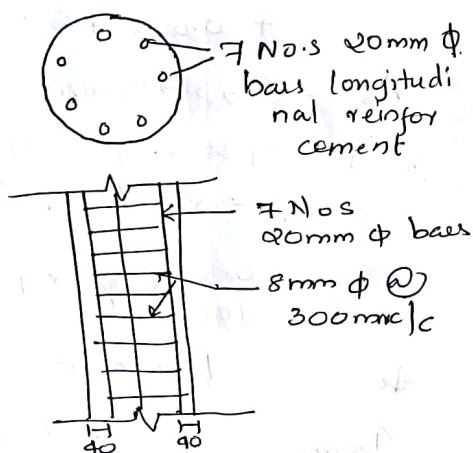 7 No.s 20mm ϕ
bars longitudi
nal reinfor
cement
7 Nos
20mm ϕ bars
8mm ϕ @
300mmc/c
40
40